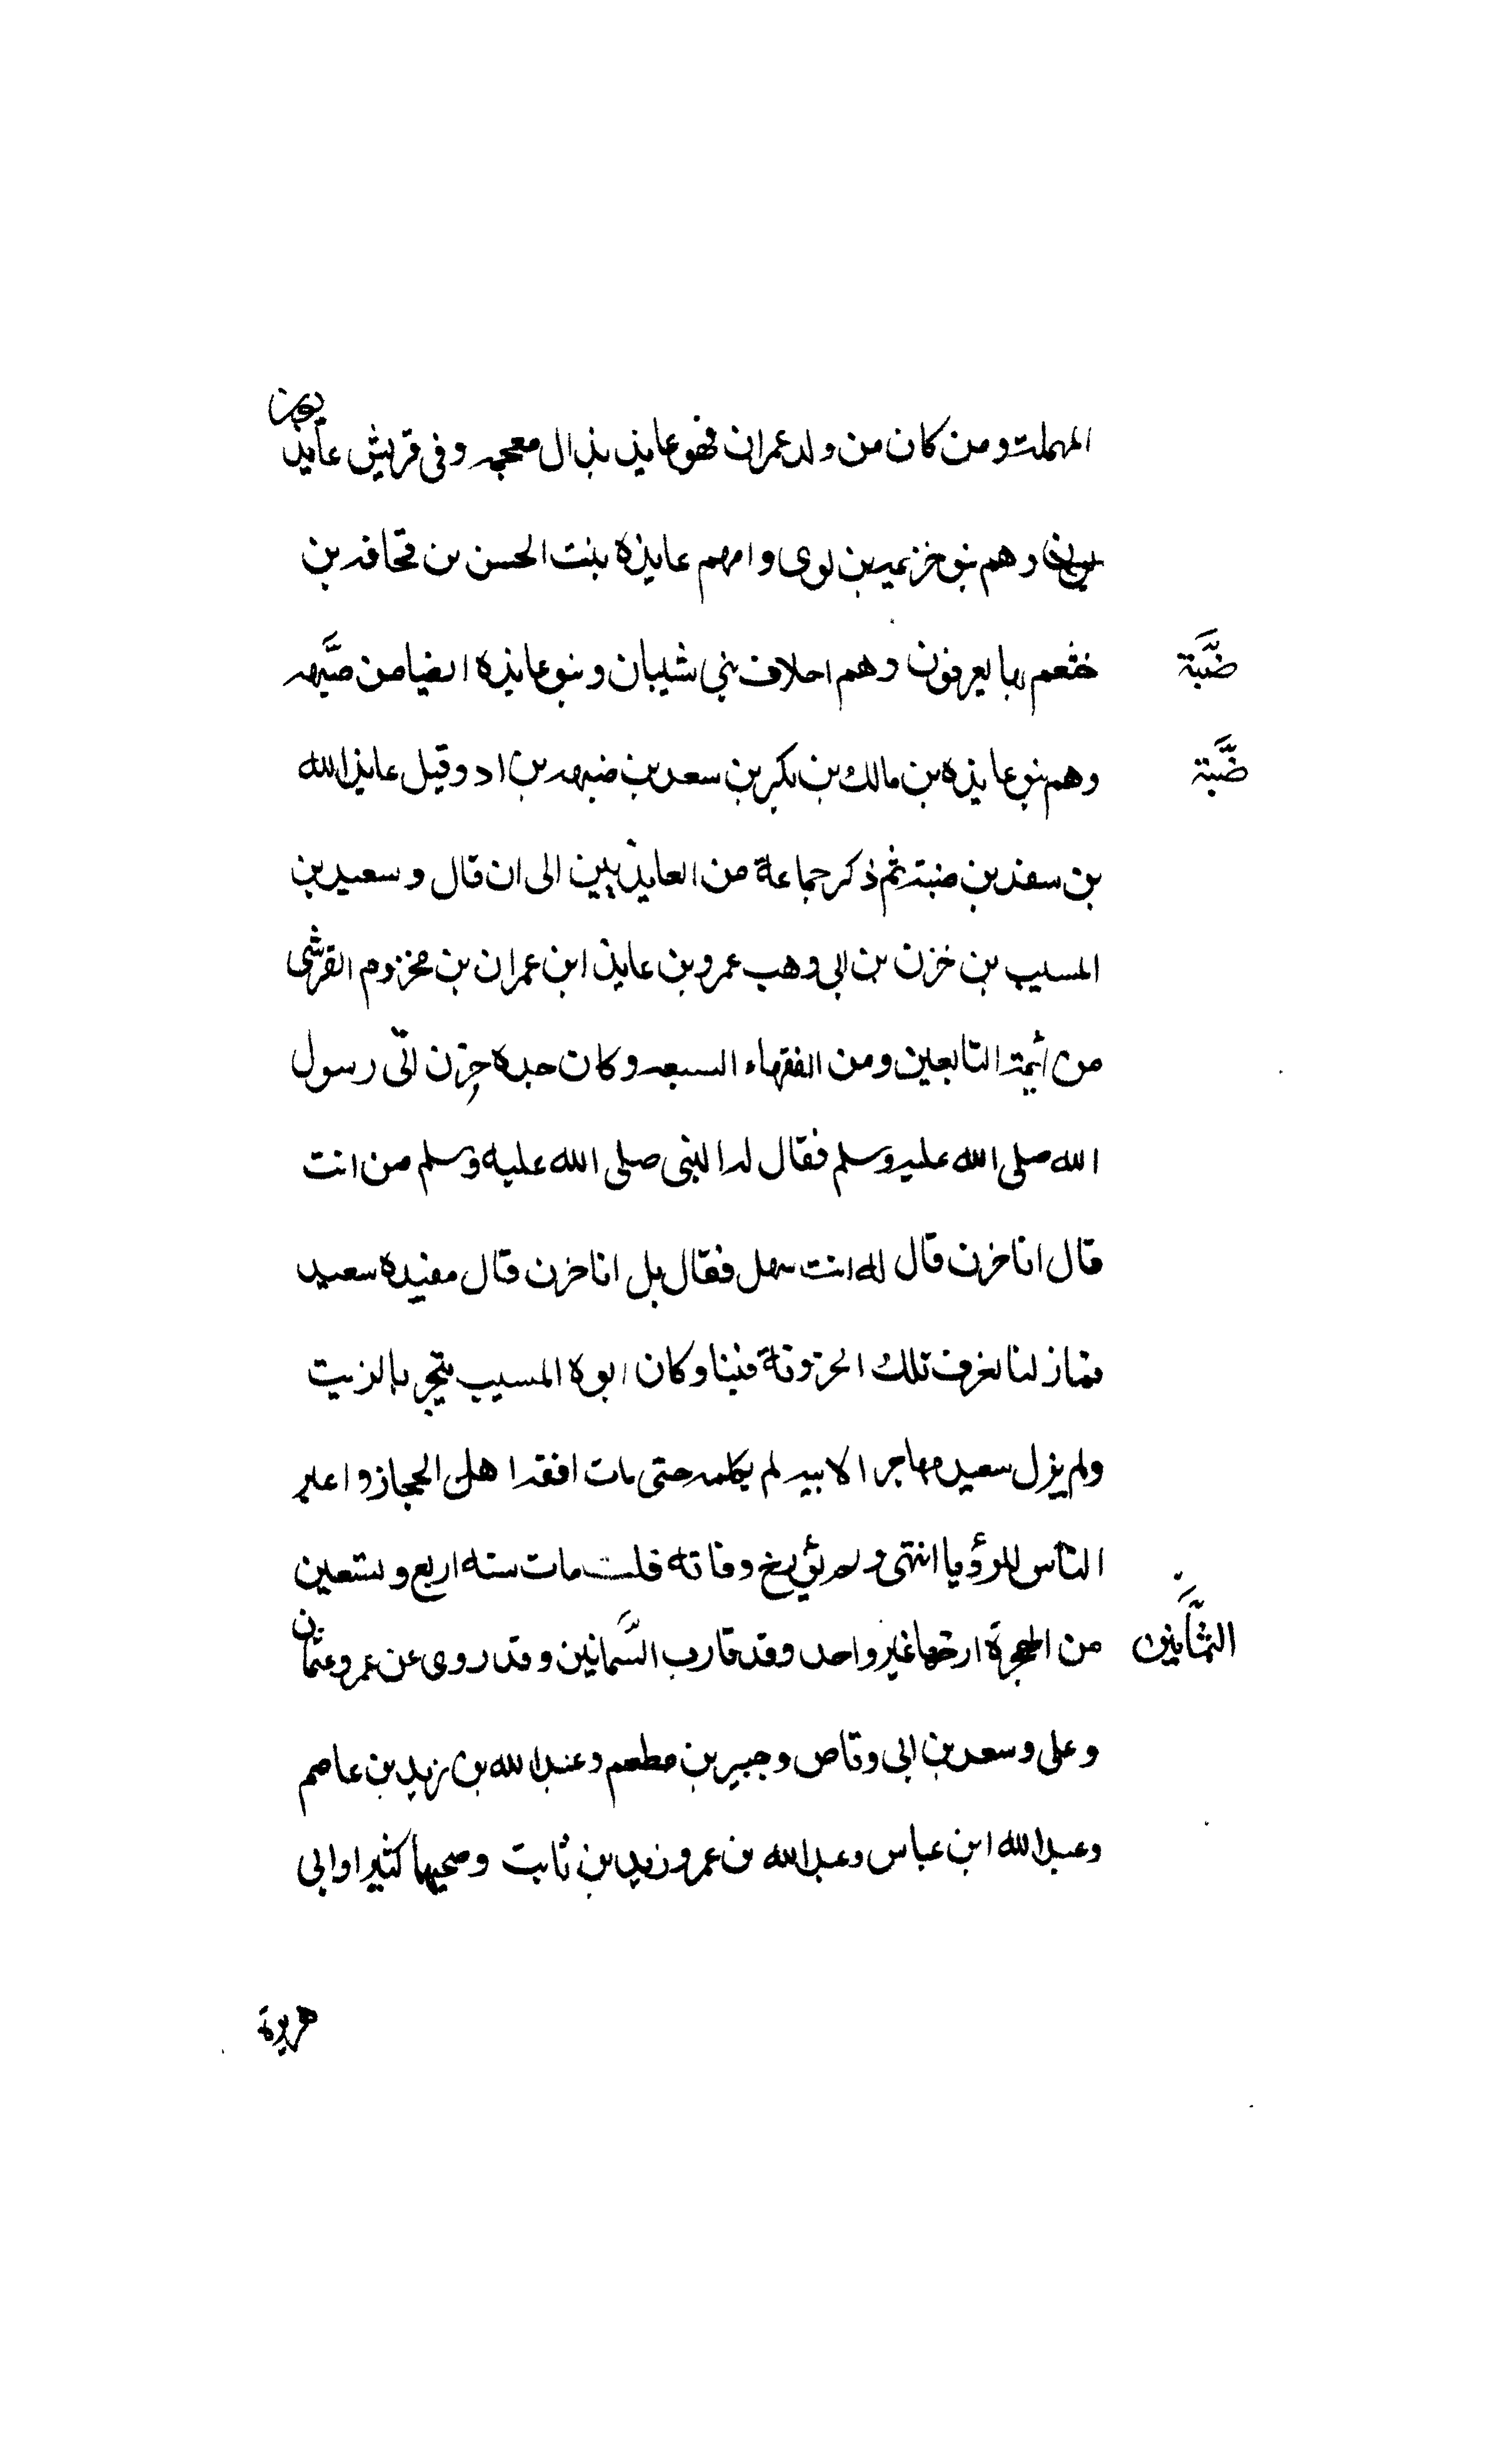 المهملة ومن كان من ولد عمران فهو عايذ بذال معجمه وفى قريش عايذيون
وهم بنو خزيمه بن لوى وامهم عايذه بنت الحسن بن قحافه بن
خثعم بها يعرفون وهم احلاف بنى شيبان وبنو عايذه ايضا من ضبَّيه
ضَبَّة
وهم بنو عايذه بن مالك بن بكر بن سعد بن ضبهه بن اد وقيل عايذ الله
ضَبَّة
بن سعد بن ضبة ثم ذكر جماعة من العايذيين الى ان قال وسعيد بن
المسيب بن خزن بن ابى وهب عمرو بن عايذ ابن عمران بن مخزوم القرشى
من أئمة التابعين ومن الفقهاء السبعه وكان جده حزن اتى رسول
الله صلى الله عليه وسلم فقال له النبى صلى الله عليه وسلم من انت
قال انا خزن قال له انت سهل فقال بل انا خزن قال مفيده سعيد
فماز لنا نعرف تلك الحزونة فينا وكان ابوه المسيب يتجر بالزيت
ولم يزل سعيد مهاجرا لابيه لم يكلمه حتى مات افقه اهل الحجاز واعبر
الناس للرؤيا انتهى ولم يؤريخ وفاته قلت مات سنه اربع وتسعين
من الهجرة ارخها غير واحد وقد قارب السَّمانين وقد روى عن عمر وعثمان
الثمَّانين
وعلى وسعد بن ابى وقاص وجبير بن مطعم وعبد الله بن زيد بن عاصم
وعبد الله ابن عباس وعبد الله بن عمر وزيد بن ثابت وصحيها كثيرا وابى
هريرة